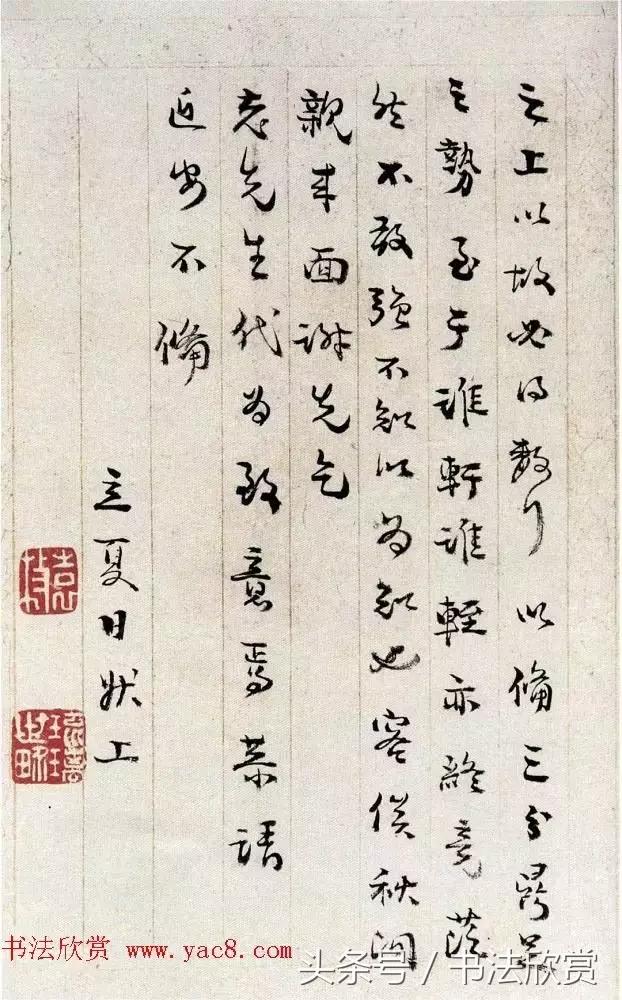 之上以故必得数行 以備三分鼎足
之勢至于誰軒誰輊亦終竟茫
然不敢強不知以為知也容俟秋間
親來面謝先乞
老先生代為致意焉恭請
近安不備
立夏日狀上
袁
书法欣赏 www.yac8.com
头条号 / 书法欣赏